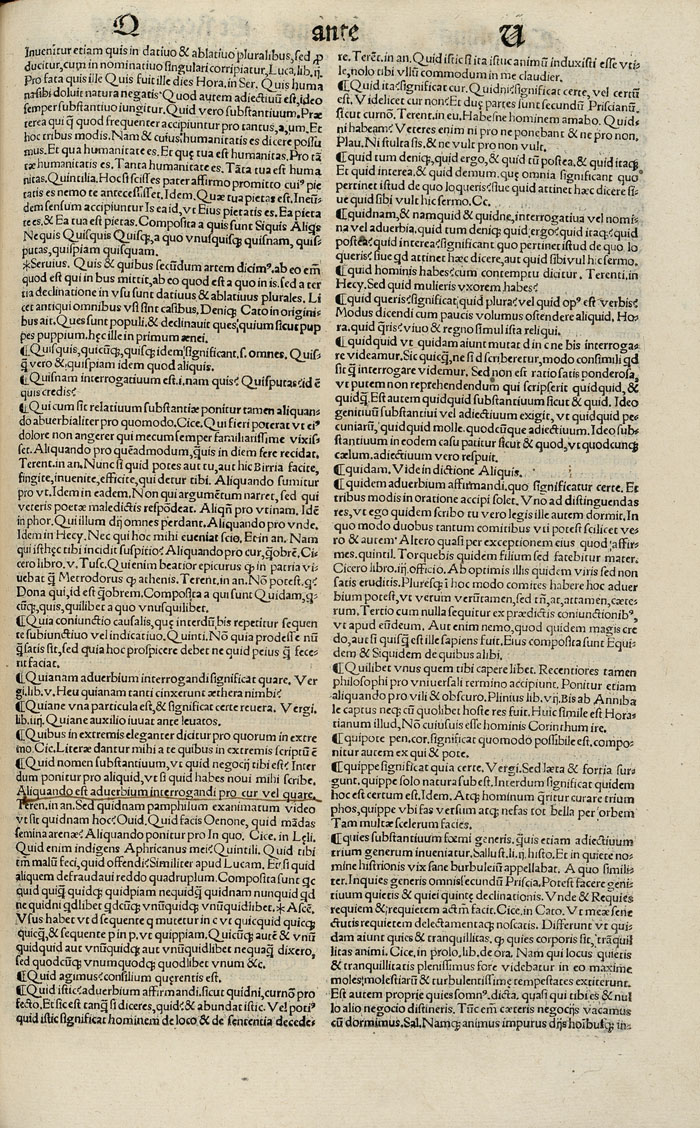 Q ante U
Inuenitur etiam quis in datiuo & ablatiuo pluralibus, sed ꝓ
ducitur, cum in nominatiuo singulari corripiatur, Luca, lib. ij.
Pro fata quis ille Quis fuit ille dies Hora, in Ser. Quis huma
nasibi doluit natura negatis. Quod autem adiectiuũ est, ideo
semper substantiuo iungitur. Quid vero substantiuum, Præ
terea qui q̃ quod frequenter accipiuntur pro tantus, a, um. Et
hoc tribus modis. Nam & cuius humanitatis es dicere possu
mus. Et qua humanitate es. Et quę tua est humanitas. Pro tã
tæ humanitatis es. Tanta humanitate es. Tãta tua est huma
nitas. Quintilia. Hoc si scisses pater affirmo promitto cui⁹ pie
tatis es nemo te antecessisset. Idem. Quæ tua pietas est. In
dem sensum accipiuntur Is ea id, vt Eius pietatis es. Ea pieta
te es. & Ea tua est pietas. Composita a quis sunt Siquis Aliqs
Nequis Quisquis Quisq;, a quo vnusquisq; quisnam, quis-
putas, quispiam quisquam.
*Seruius. Quis & quibus secũdum artem dicim⁹. ab eo em̃
quod est qui in bus mittit, ab eo quod est a quo in is. sed a ter
tia declinatione in vsu sunt datiuus & ablatiuus plurales. Li
cet antiqui omnibus vsi sint casibus. Deniq; Cato in origini-
bus ait. Ques sunt populi, & declinauit ques, quium sicut pup
pes puppium. hęc ille in primum ænei.
¶Quisquis, quicũq;, quisq; idem significant. s. omnes. Quis-
q̃ vero & quispiam idem quod aliquis.
¶Quisnam interrogatiuum est. i. nam quis? Quisputas: id ẽ
quis credis?
¶Qui cum sit relatiuum substantiæ ponitur tamen aliquan-
do abuerbialiter pro quomodo. Cice. Qui fieri poterat vt ei⁹
dolore non angerer qui mecum semper familiarissime vixis-
set. Aliquando pro quẽadmodum, q̃uis in diem fere recidat.
Terent. in an. Nunc si quid potes aut tu, aut hic Birria facite,
fingite, inuenite, efficite, qui detur tibi. Aliquando sumitur
pro vt. Idem in eadem. Non qui argumẽtum narret, sed qui
veteris poetæ maledictis respõdeat. Aliqñ pro vtinam. Idẽ
in phor. Qui illum dij omnes perdant. Aliquando pro vnde.
Idem in Hecy. Nec qui hoc mihi eueniat scio. Et in an. Nam
qui isthęc tibi incidit suspitio? Aliquando pro cur, q̃obrẽ. Ci-
cero libro. v. Tusc. Qui enim beatior epicurus q̃ in patria vi-
uebat q̃ Metrodorus q̃ athenis. Terent. in an. Nõ potest. q?
Dona qui, id est q̃obrem. Composita a qui sunt Quidam, q-
cũq;, quis, quilibet a quo vnusquilibet.
¶Quia coniunctio causalis, que interdũ bis repetitur sequen
te subiunctiuo vel indicatiuo. Quinti. Nõ quia prodesse nũ
q̃ satis sit, sed quia hoc prospicere debet ne quid peius q̃ fece-
rit faciat.
¶Quianam aduerbium interrogandi significat quare. Ver
gi. lib. v. Heu quianam tanti cinxerunt æthera nimbi?
¶Quiane vna particula est, & significat certe reuera. Vergi.
lib. iiij. Quiane auxilio iuuat ante leuatos.
¶Quibus in extremis eleganter dicitur pro quorum in extre
mo. Cic. Literæ dantur mihi a te quibus in extremis scriptũ ẽ
¶Quid nomen substantiuum, vt quid negocij tibi est? Inter
dum ponitur pro aliquid, vt si quid habes noui mihi scribe.
Aliquando est aduerbium interrogandi pro cur vel quare.
Teren. in an. Sed quidnam pamphilum exanimatum video
vt sit quidnam hoc? Ouid. Quid facis Oenone, quid mãdas
semina arenæ? Aliquando ponitur pro In quo. Cice. in Leli.
Quid enim indigens Aphricanus mei? Quintili. Quid tibi
tm̃ malũ feci, quid offendi? Similiter apud Lucam. Et si quid
aliquem defraudaui reddo quadruplum. Composita sunt qc
quid quiq̃ quidq; quidpiam nequidq̃ quidnam nunquid qd
ne quidni qdlibet qdcũq; vnũquidq; vnũquidlibet. * Ascẽ.
Vsus habet vt d sequente q mutetur in c vt quicquid quicq;
quicq̃, & sequente p in p. vt quippiam. Quicũq; autẽ & vnũ
quidquid aut vnũquidq; aut vnũquidlibet nequaq̃ dixero,
sed quodcũq; vnumquodq; quodlibet vnum &c.
¶Quid agimus? consilium quęrentis est.
¶Quid istic? aduerbium affirmandi. sicut quidni, cur nõ pro
fecto. Et sic est tanq̃ si diceres, quid? & abundat istic. Vel poti⁹
quid istic significat hominem de loco & de sententia decede-
re. Terẽt. in an. Quid istic si ita istuc animũ induxisti esse vti-
le, nolo tibi vllũ commodum in me claudier.
¶Quid ita? significat cur. Quidni? significat certe, vel certũ
est. Videlicet cur non? Et duę partes sunt secundũ Priscianũ,
sicut curnõ. Terent. in eu. Habesne hominem amabo. Quid-
ni habeam? Veteres enim ni pro ne ponebant & ne pro non.
Plau. Ni stulta sis, & ne vult pro non vult.
¶quid tum deniq;, quid ergo, & quid tũ postea, & quid itaq;
Et quid interea? & quid demum. quę omnia significant quo
pertinet istud de quo loqueris? siue quid attinet hæc dicere si-
ue quid sibi vult hic sermo. Cc.
¶quidnam, & namquid & quidne, interrogatiua vel nomi-
na vel aduerbia, quid tum deniq; quid ergo? quid itaq;? quid
postea? quid interea? significant quo pertinet istud de quo lo
queris? siue qd attinet hæc dicere, aut quid sibi vul hic sermo.
¶quid hominis habes? cum contemptu dicitur. Terenti. in
Hecy. Sed quid mulieris vxorem habes?
¶quid queris? significat, quid plura? vel quid op⁹ est verbis?
Modus dicendi cum paucis volumus ostendere aliquid. Ho-
ra. quid q̃ris? viuo & regno simul ista reliqui.
¶quidquid vt quidam aiunt mutat d in c ne bis interroga-
re videamur. Sic quicq̃, ne si d scriberetur, modo consimili qd
sit q̃ interrogare videmur. Sed non est ratio satis ponderosa,
vt putem non reprehendendum qui scripserit quidquid, &
quidq̃. Est autem quidquid substantiuum sicut & quid. Ideo
genitiuũ substantiui vel adiectiuum exigit, vt quidquid pe-
cuniarũ, quidquid molle. quodcũque adiectiuum. Ideo sub-
stantiuum in eodem casu patitur sicut & quod, vt quodcunq;
cælum. adiectiuum vero respuit.
¶quidam. Vide in dictione Aliquis.
¶quidem aduerbium affirmandi. quo significatur certe. Et
tribus modis in oratione accipi solet. Vno ad distinguendas
res, vt ego quidem scribo tu vero legis ille autem dormit. In
quo modo duobus tantum comitibus vti potest scilicet ve-
ro & autem. Altero quasi per exceptionem eius quod affir-
mes. quintil. Torquebis quidem filium sed fatebitur mater.
Cicero libro. iij. officio. Ab optimis illis quidem viris sed non
satis eruditis. Pluresq; i hoc modo comites habere hoc aduer
bium potest, vt verum verũtamen, sed tñ, at, attamen, cæte-
rum. Tertio cum nulla sequitur ex prædictis coniunctionib⁹,
vt apud eũdeum. Aut enim nemo, quod quidem magis cre
do, aut si quisq̃ est ille sapiens fuit. Eius composita sunt Equi-
dem & Siquidem de quibus alibi.
¶Quilibet vnus quem tibi capere libet. Recentiores tamen
philosophi pro vniuersali termino accipiunt. Ponitur etiam
aliquando pro vili & obscuro. Plinius lib. vij. Bis ab Anniba
le captus neq; cũ quolibet hoste res fuit. Huic simile est Hora-
tianum illud, Nõ cuiusuis esse hominis Corinthum ire.
¶quipote pen. cor. significat quomodo possibile est. compo-
nitur autem ex qui & pote.
¶quippe significat quia certe. Vergi. Sed læta & fortia sur-
gunt. quippe solo natura subest. Interdum significat quidem
hoc est certum est. Idem. Atq; hominum q̃ritur curare trium
phos, quippe vbi fas versum atq; nefas tot bella per orbem
Tam multæ scelerum facies.
¶quies substantiuum fœmi generis. q̃uis etiam adiectiuum
trium generum inueniatur. Sallust. li. ij. histo. Et in quiete no-
mine histrionis vix sane burbuleiũ appellabat. A quo simili-
ter. Inquies generis omnis secundũ Priscia. Potest facere geni-
tiuum quietis & quiei quintę declinationis. Vnde & Requies
requiem &, requietem actm̃ facit. Cice. in Cato. Vt meæ sene
ctutis requietem delectamentaq; noscatis. Differunt vt qui-
dam aiunt quies & tranquillitas. q̃ quies corporis sit, trãquil
litas animi. Cice. in prolo. lib. de ora. Nam qui locus quietis
& tranquillitatis plenissimus fore videbatur in eo maxime
moles molestiarũ & turbulentissimę tempestates extiterunt.
Est autem proprie quies somn⁹. dicta. quasi qui tibi es & nul
lo alio negocio distineris. Tũc em̃ cæteris negocijs vacamus
cũ dormimus. Sal. Namq; animus impurus dijs hoĩbusq; in-